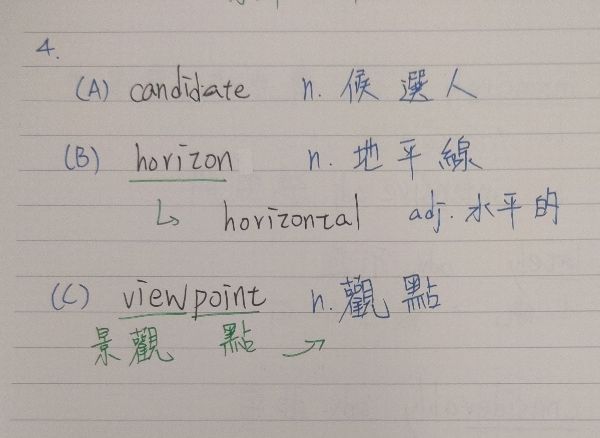 4.
(A) candidate n. 候選人
(B) horizon n. 地平線
↳ horizontal adj. 水平的
(C) viewpoint n. 觀點
景觀 點 →